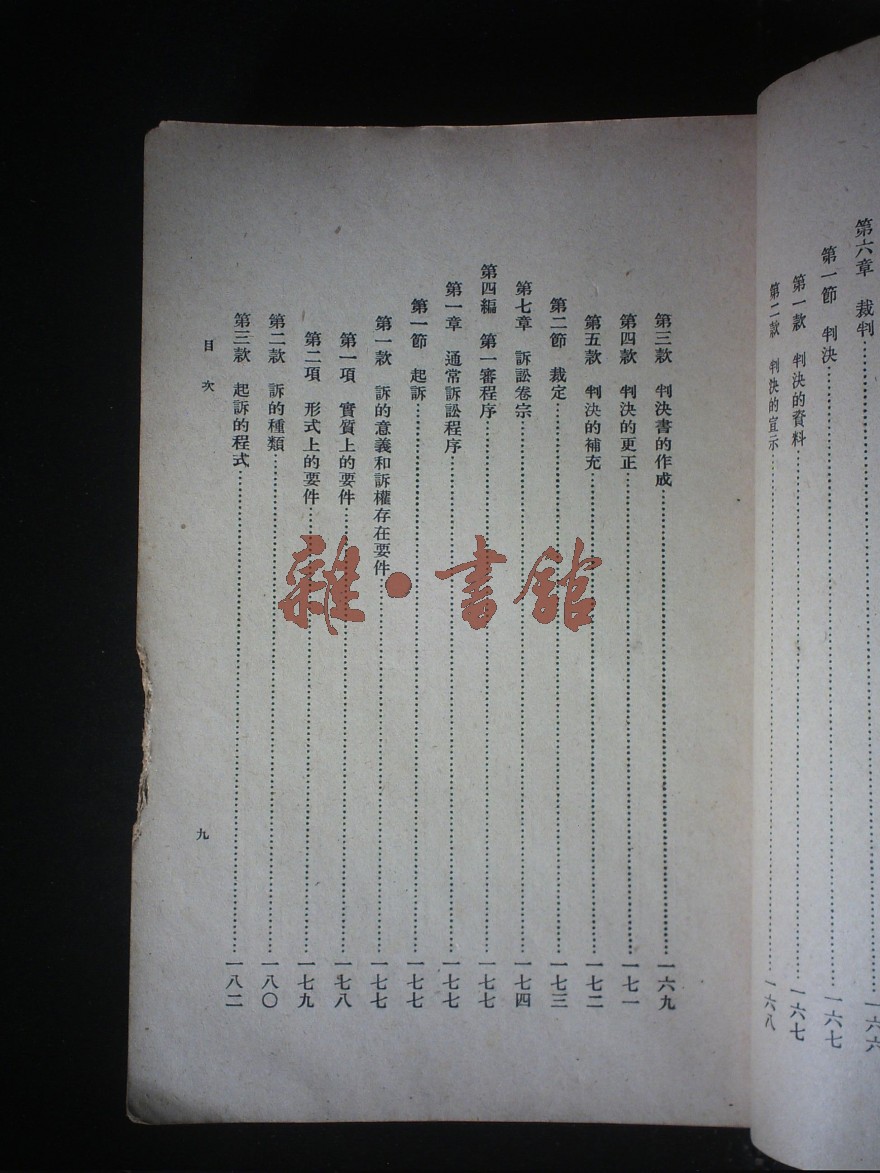 第六章 裁判……一六六
第一節 判決……一六七
第一款 判決的資料……一六七
第二款 判決的宣示……一六八
第三款 判決書的作成……一六九
第四款 判決的更正……一七一
第五款 判決的補充……一七二
第二節 裁定……一七三
第七章 訴訟卷宗……一七四
第四編 第一審程序……一七七
第一章 通常訴訟程序……一七七
第一節 起訴……一七七
第一款 訴的意義和訴權存在要件……一七七
第一項 實質上的要件……一七八
第二項 形式上的要件……一七九
第二款 訴的種類……一八〇
第三款 起訴的程式……一八二
目次
九
雜·書館